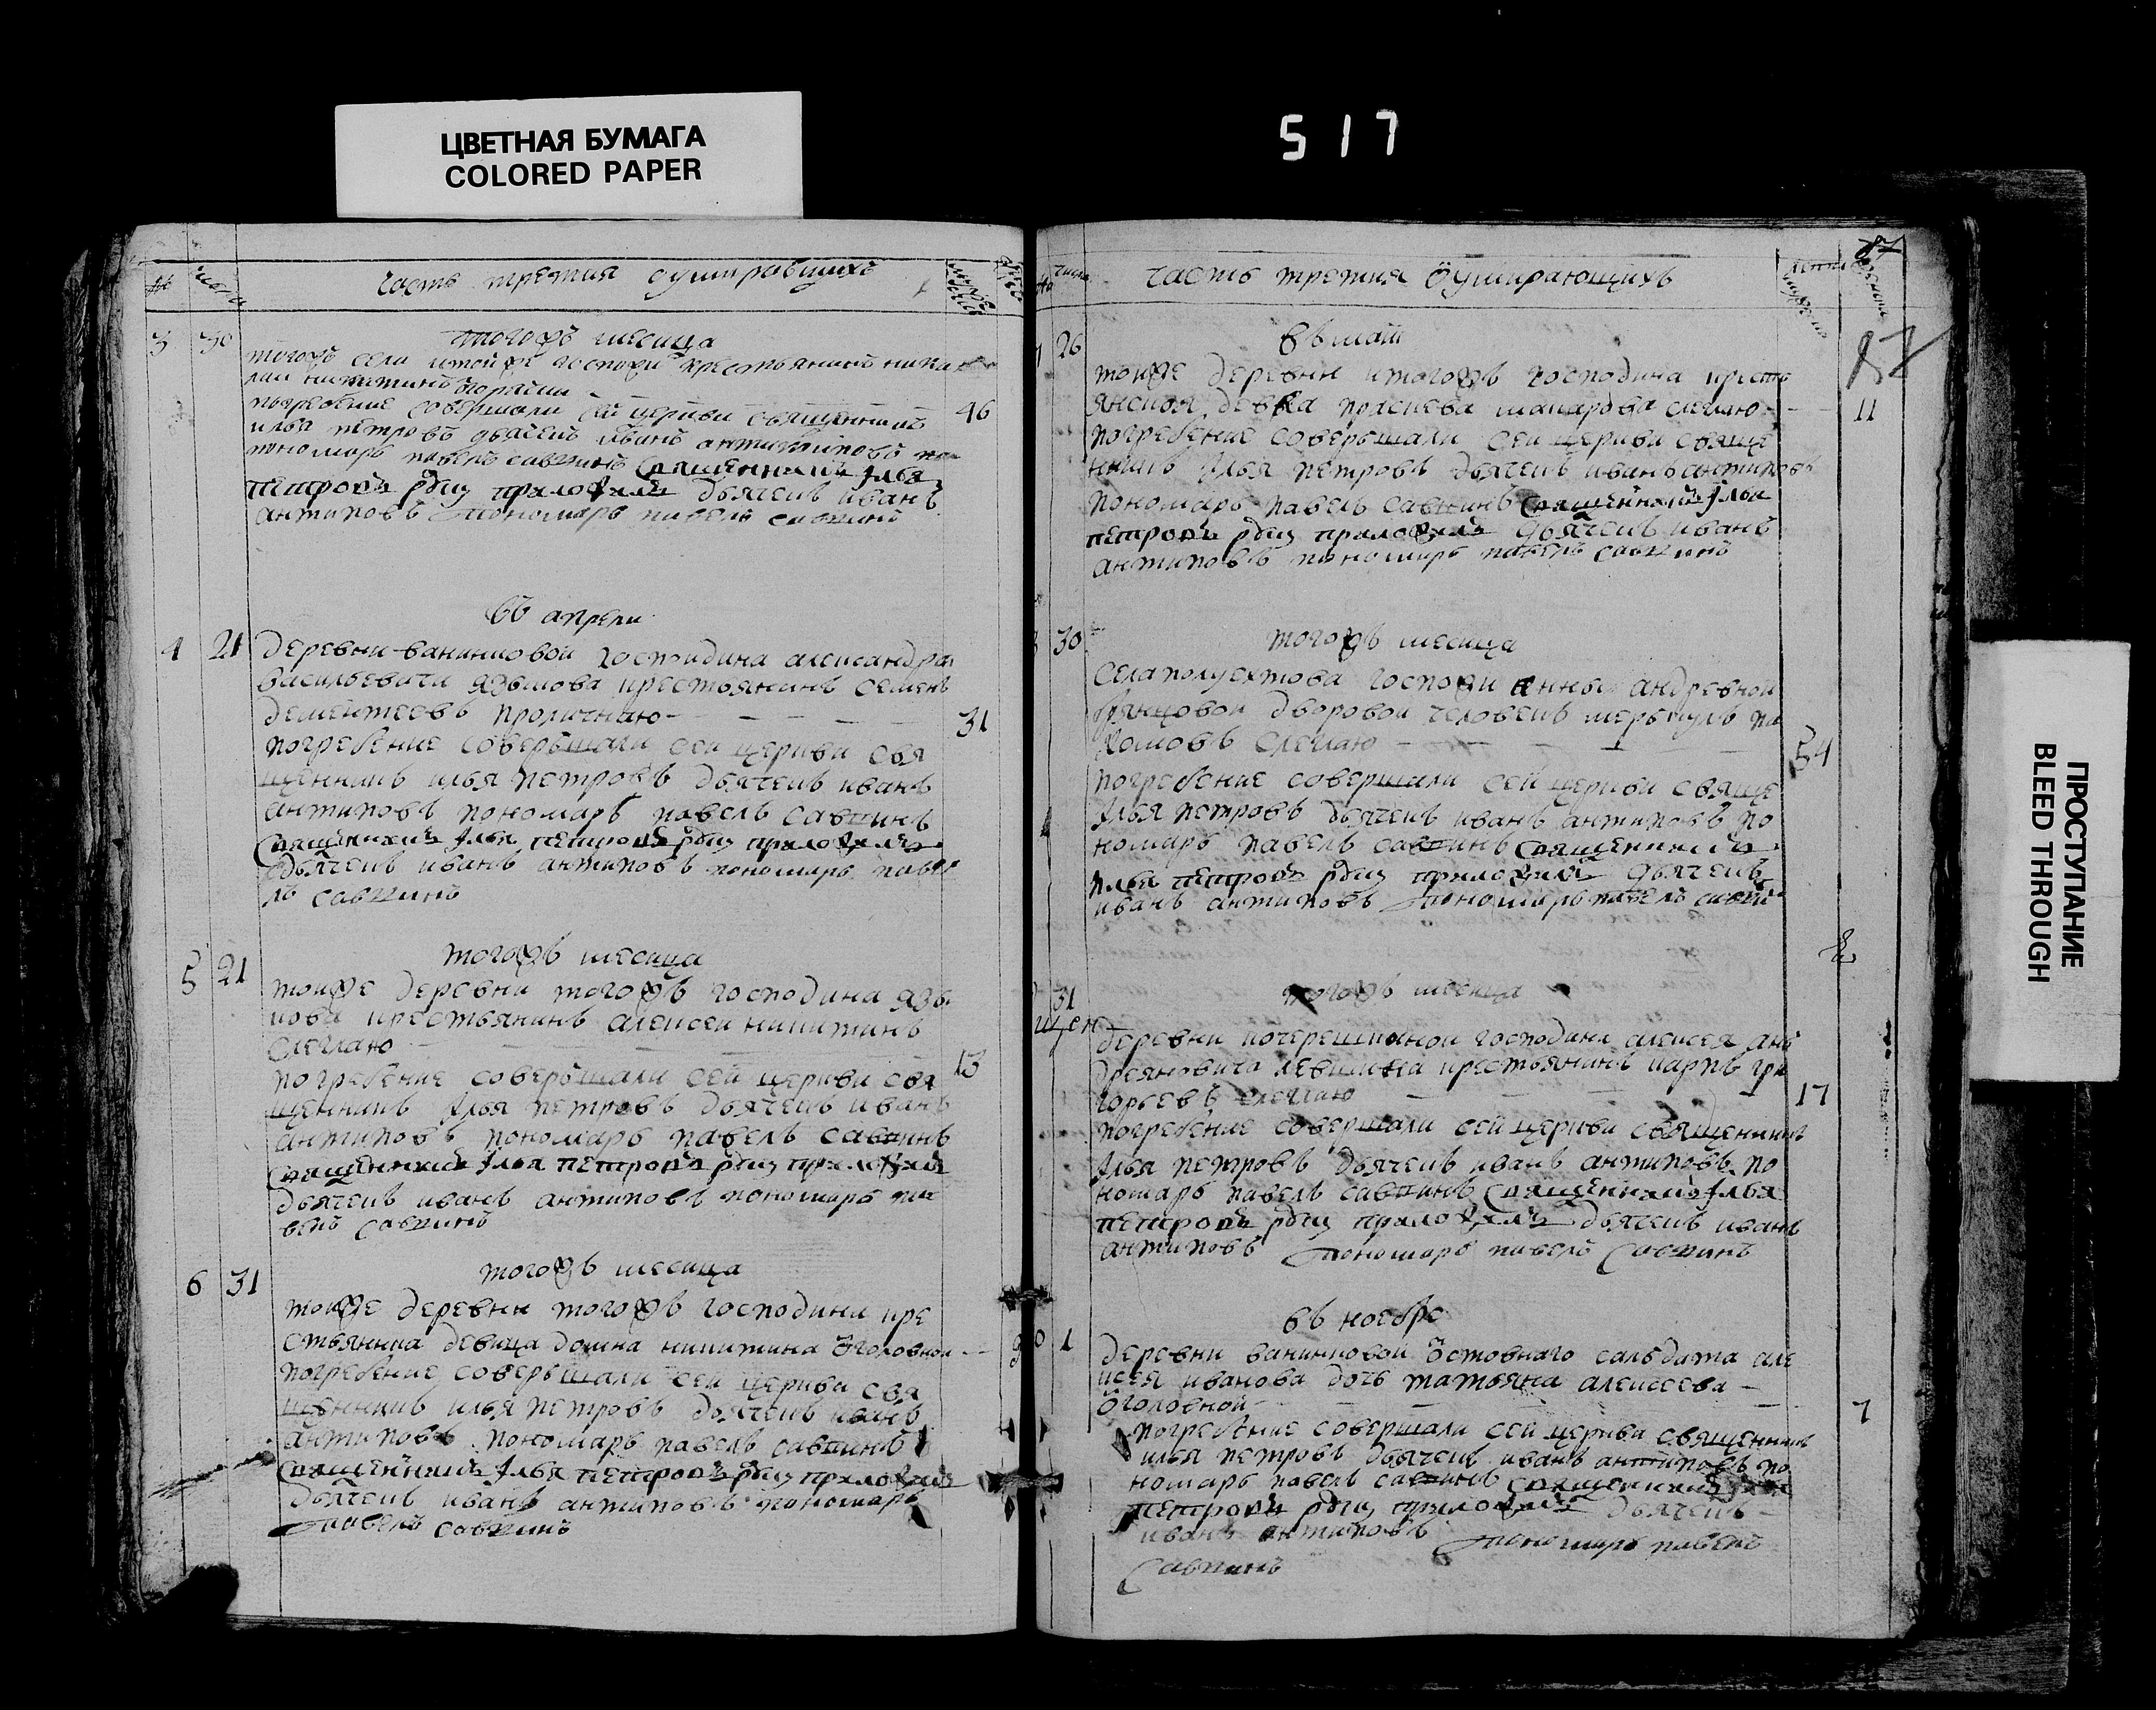 ЦВЕТНАЯ БУМАГА
COLORED PAPER
517
ПРОСТУПАНИЕ
BLEED THROUGH
№
числа
часть третия оумировшихъ
3 30
тогожъ месяца
тогожъ села и тойже госпожи крестьянинъ
никитинъ
погребение совершали сей церкви священникъ
46
илья петровъ дьячекъ иванъ антиповъ
пономарь павелъ савкинъ Священникъ Илья
петровъ руку приложилъ дьячекъ иванъ
антиповъ пономарь павелъ савкинъ
въ апрели
4 21 деревни ванинковой господина александра
васильевича языкова крестьянинъ семенъ
дементеевъ
31
погребение совершали сей церкви свя
щенникъ илья петровъ дьячекъ иванъ
антиповъ пономарь павелъ савкинъ
Священникъ Илья петровъ руку приложилъ
дьячекъ иванъ антиповъ пономарь паве
лъ савкинъ
тогожъ месяца
5 21
тойже деревни тогожъ господина язы
кова крестьянинъ алексей никитинъ
13
погребение совершали сей церкви свя
щенникъ Илья петровъ дьячекъ иванъ
антиповъ пономарь павелъ савкинъ
Священникъ Илья петровъ руку приложилъ
дьячекъ иванъ антиповъ пономарь па
велъ савкинъ
тогожъ месяца
6 31
тойже деревни тогожъ господина кре
стьянка девица домна никитина
погребение совершали сей церкви свя
щенникъ илья петровъ дьячекъ иванъ
антиповъ пономарь павелъ савкинъ
Священникъ Илья петровъ руку приложилъ
дьячекъ иванъ антиповъ пономарь
павелъ савкинъ
87
часть третия оумирающихъ
87
26
въ маи
тойже деревни и тогожъ господина кресть
янская девка
11
погребение совершали сей церкви свяще
нникъ Илья петровъ дьячекъ иванъ антиповъ
пономарь павелъ савкинъ Священникъ Илья
петровъ руку приложилъ дьячекъ иванъ
антиповъ пономарь павелъ савкинъ
30
тогожъ месяца
села полуехтова госпожи анны андревной
дворовой человекъ
54
погребение совершали сей церкви свяще
Илья петровъ дьячекъ иванъ антиповъ по
номарь павелъ савкинъ Священникъ
Илья петровъ руку приложилъ дьячекъ
иванъ антиповъ пономарь павелъ
31
тогожъ месяца
деревни господина алексея анд
реяновича левшина крестьянинъ карпъ гри
горьевъ
17
погребение совершали сей церкви священникъ
Илья петровъ дьячекъ иванъ антиповъ по
номарь павелъ савкинъ Священникъ Илья
петровъ руку приложилъ дьячекъ иванъ
антиповъ пономарь павелъ савкинъ
въ ноебре
1
деревни ванинковой отставнаго салъдата але
ксея иванова дочь татьяна алексеева
7
погребение совершали сей церкви священникъ
илья петровъ дьячекъ иванъ антиповъ по
номарь павелъ савкинъ Священникъ
петровъ руку приложилъ дьячекъ
иванъ антиповъ пономарь павелъ
савкинъ